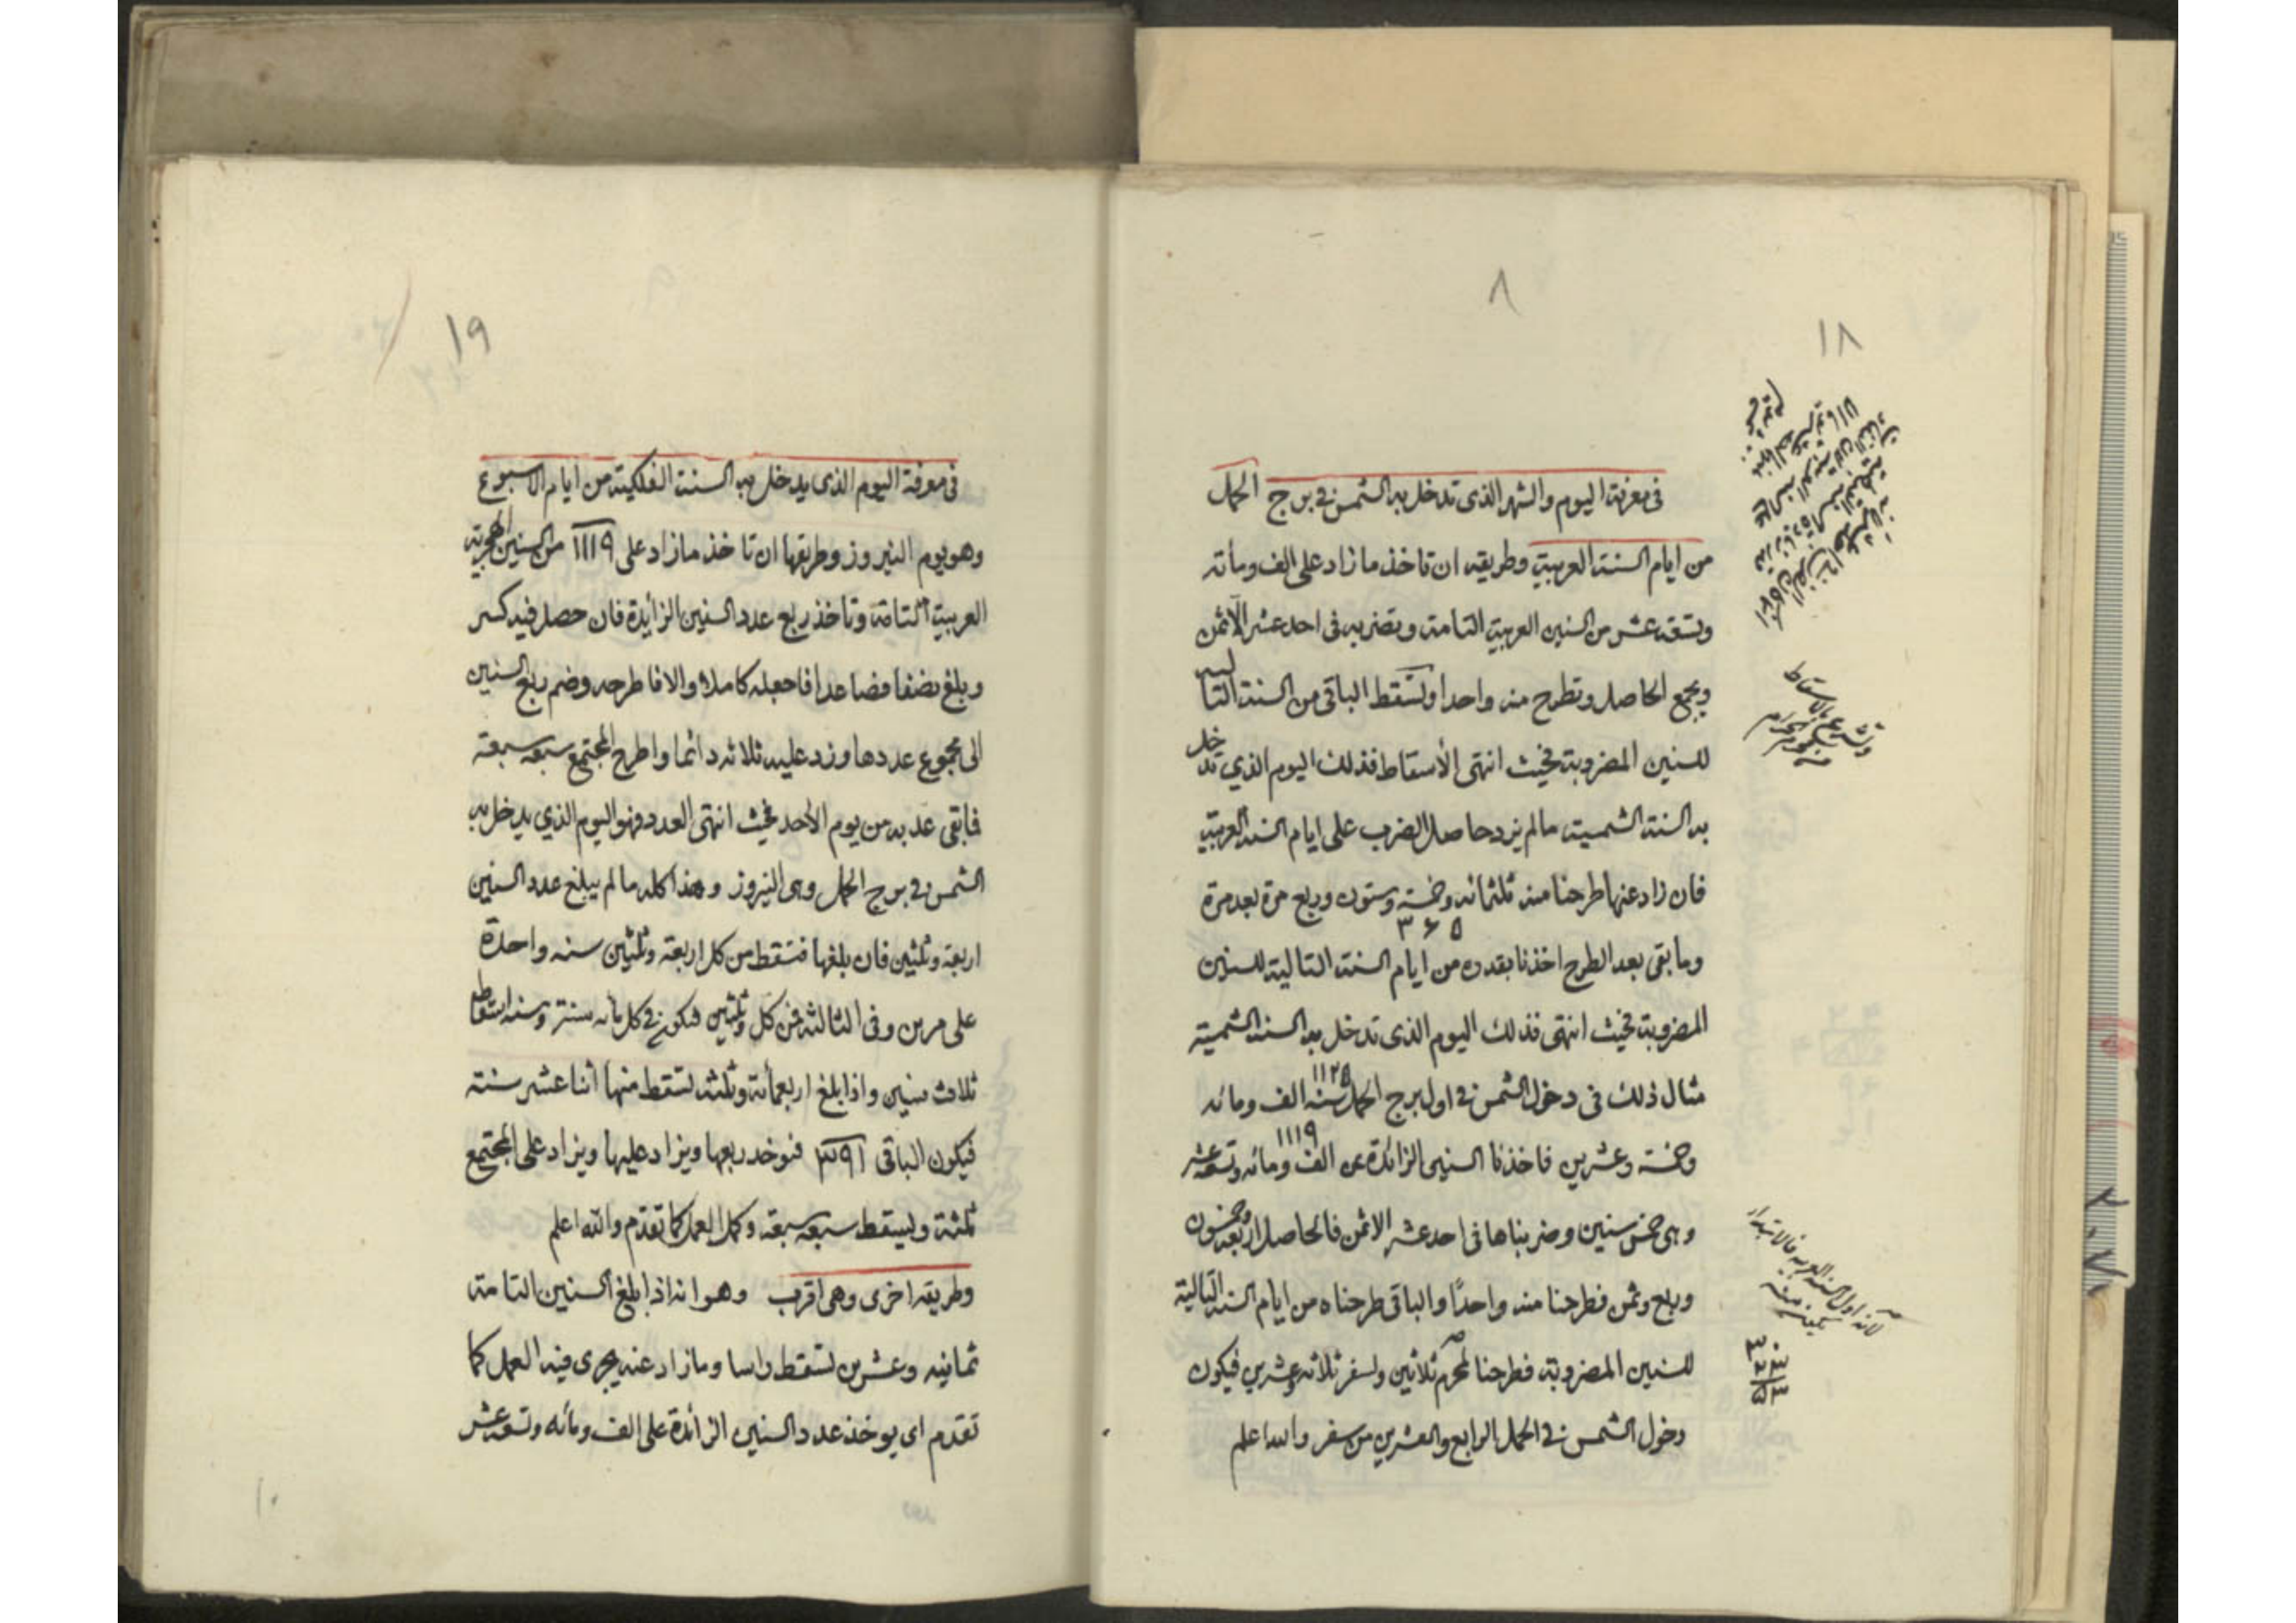 ٨
١٨
في معرفة اليوم والشهر الذي تدخل به الشمس في برج الحمل
من ايام السنة العربية وطريقه ان تاخذ ما زاد على الف ومأته
وتسعة عشر من السنين العربية التامة وتضربه في احد عشر الاثمن
ويجمع الحاصل وتطرح منه واحدا ولتسقط الباقي من السنة التاليه
للسنين المضروبة فحيث انتهى الأسقاط فذلك اليوم الذي تدخل
به السنة الشمسية ما لم يزد حاصل الضرب على ايام السنة العربية
فان زاد عنها طرحنا منه ثلثمائه وخمسة وستون وربع مرة بعد مرة
٣٦٥
وما بقى بعد الطرح اخذنا بقدره من ايام السنة التالية للسنين
المضروبة فحيث انتهى فذلك اليوم الذي تدخل به السنة الشمسية
مثال ذلك في دخول الشمس في اول برج الحمل سنة ١١٢٥ الف ومائه
وخمسة وعشرين فاخذنا السنين الزائدة عن ١١١٩ الف ومائه وتسعة عشر
وهي خمس سنين وضربناها في احد عشر الاثمن فالحاصل اربعة وخمسون
وربع وثمن فطرحنا منه واحدًا والباقي طرحناه من ايام السنة التالية
للسنين المضروبة فطرحنا لمحرم ثلاثين ولسفر ثلاثه وعشرين فيكون
دخول الشمس في الحمل الرابع والعشرين من سفر والله اعلم
لانه اول السنة العربيه فالابتداء
يكون منه
٣٠
٢٣
٥٣
١٩
في معرفة اليوم الذي يدخل به السنة الفلكية من ايام الاسبوع
وهو يوم النيروز وطريقها ان تاخذ ما زاد على ١١١٩ من السنين الهجرية
العربية التامة وتاخذ ربع عدد السنين الزأيدة فان حصل فيه كسر
وبلغ نصفا فصاعدا فاجعله كاملا والا فاطرحه وضم ربع السنين
الى مجموع عددها وزد عليه ثلاثه دائما واطرح المجتمع سبعه سبعة
فما بقى عد به من يوم الأحد فحيث انتهى العدد فهو اليوم الذي يدخل به
الشمس في برج الحمل وهي النيروز وهذا كله ما لم يبلغ عدد السنين
اربعة وثلثين فان بلغها فتسقط من كل اربعة وثلثين سنه واحدة
على مرين وفي الثالثة فمن كل وثلثين فيكون في كل مأئه سنة وسنه اسقاط
ثلاث سنين واذا بلغ اربعمأئة وثلثه لتسقط منها اثنا عشر سنة
فيكون الباقي ٣٩١ فنوخد ربعها ويزاد عليها ويزاد على المجتمع
ثلثة وليسقط سبعه سبعة وكمل العمل كما تقدم والله اعلم
وطريقه اخرى وهي اقرب وهو انه اذا بلغ السنين التامة
ثمانيه وعشرين لتسقط راسا وما زاد عنه يجرى فيه العمل كما
تقدم اي يوخذ عدد السنين الزائدة على الف ومائه وتسعة عشر
١٠